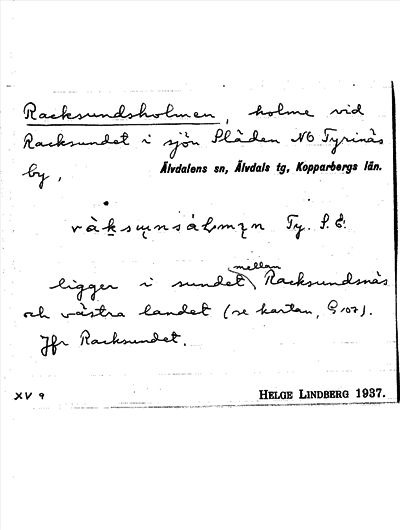 Racksundsholmen, holme vid
Racksundet i sjön Släden NO Tyrinäs
by, Älvdalens sn, Älvdals tg, Kopparbergs län.
Ty. S. E.
ligger i sundet mellan Racksundsnäs
och västra landet (se kartan, G 107).
Jfr Racksundet.
XV 9 HELGE LINDBERG 1937.